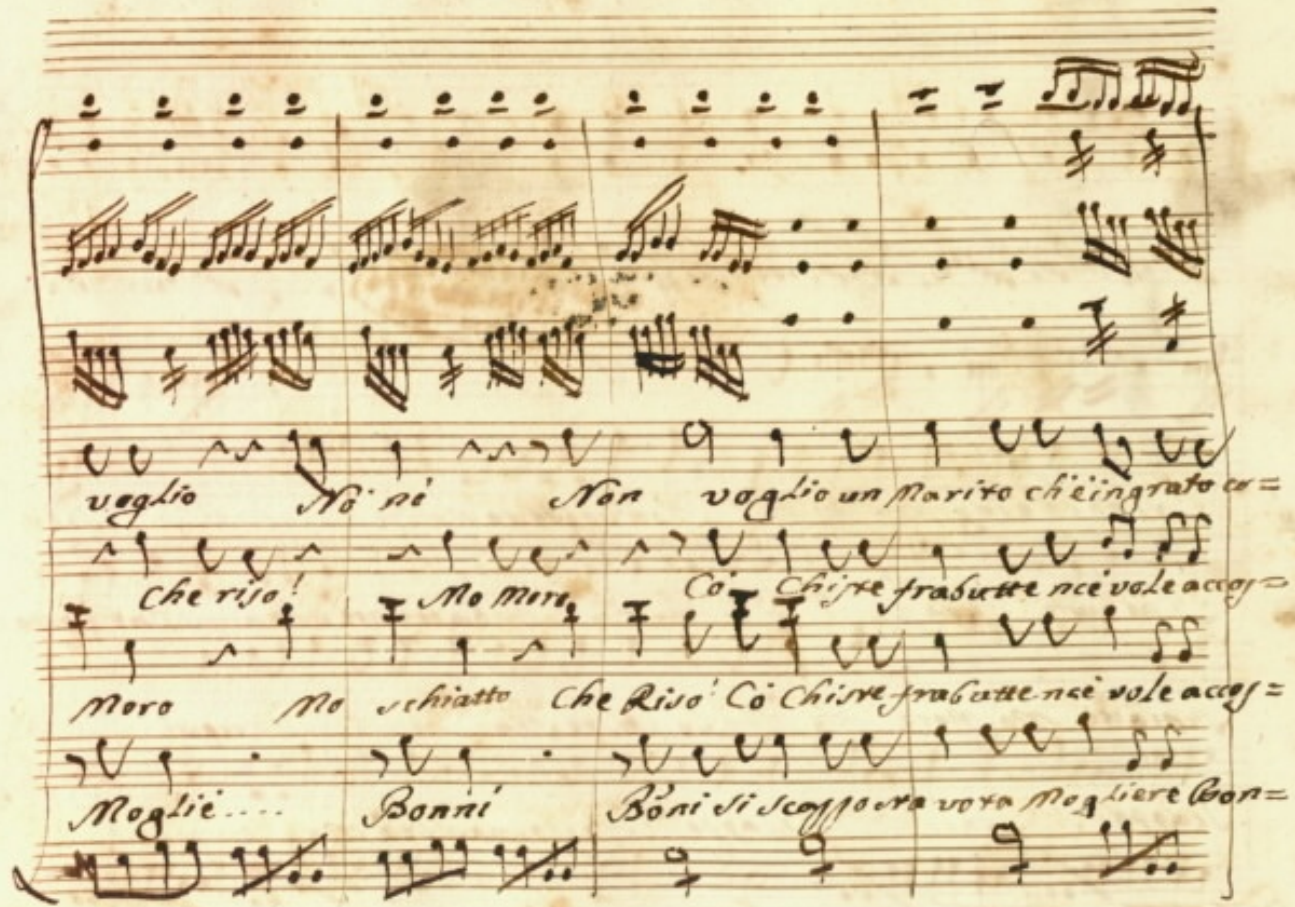 voglio Nò nè Non voglio un Marito ch'è ingrato co=
Che riso! Mo Moro Cò Chiste frabutte nce vole accos=
Moro Mo schiatto Che Riso! Cò Chiste frabutte nce vole accos=
Moglie.... Bonnì Bonì si scappo sta vota Mogliere Bon=